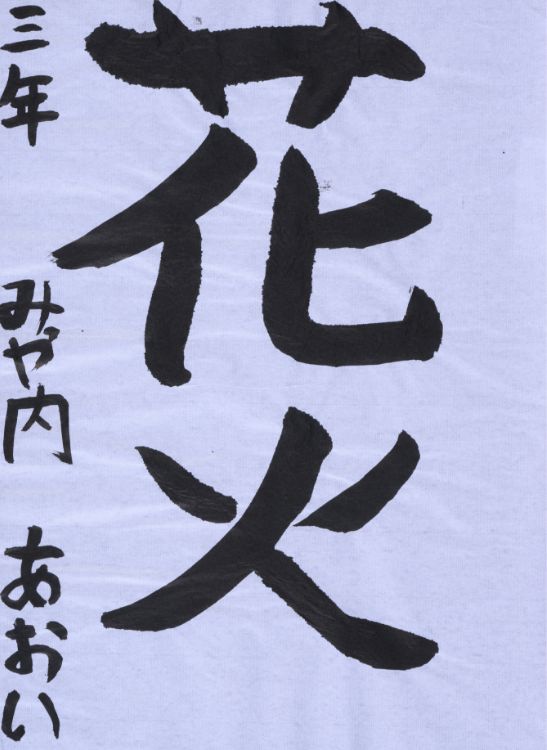 花火
三年 みや内 あおい